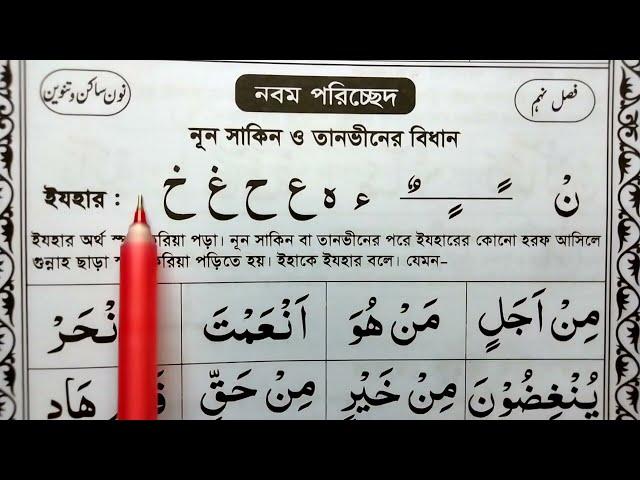 نون ساكن و تنوين
নবম পরিচ্ছেদ
فصل نہم
নূন সাকিন ও তানভীনের বিধান
ইযহার : نْ ـًـ ـٍـ ـٌـ ء ه ع ح غ خ
ইযহার অর্থ করিয়া পড়া। নূন সাকিন বা তানভীনের পরে ইযহারের কোনো হরফ আসিলে
গুন্নাহ ছাড়া করিয়া পড়িতে হয়। ইহাকে ইযহার বলে। যেমন-
مِنْ اَجَلٍ مَنْ هُوَ اَنْعَمْتَ
يُنْغِضُوْنَ مِنْ خَيْرٍ مِنْ حَقٍّ هَادٍ